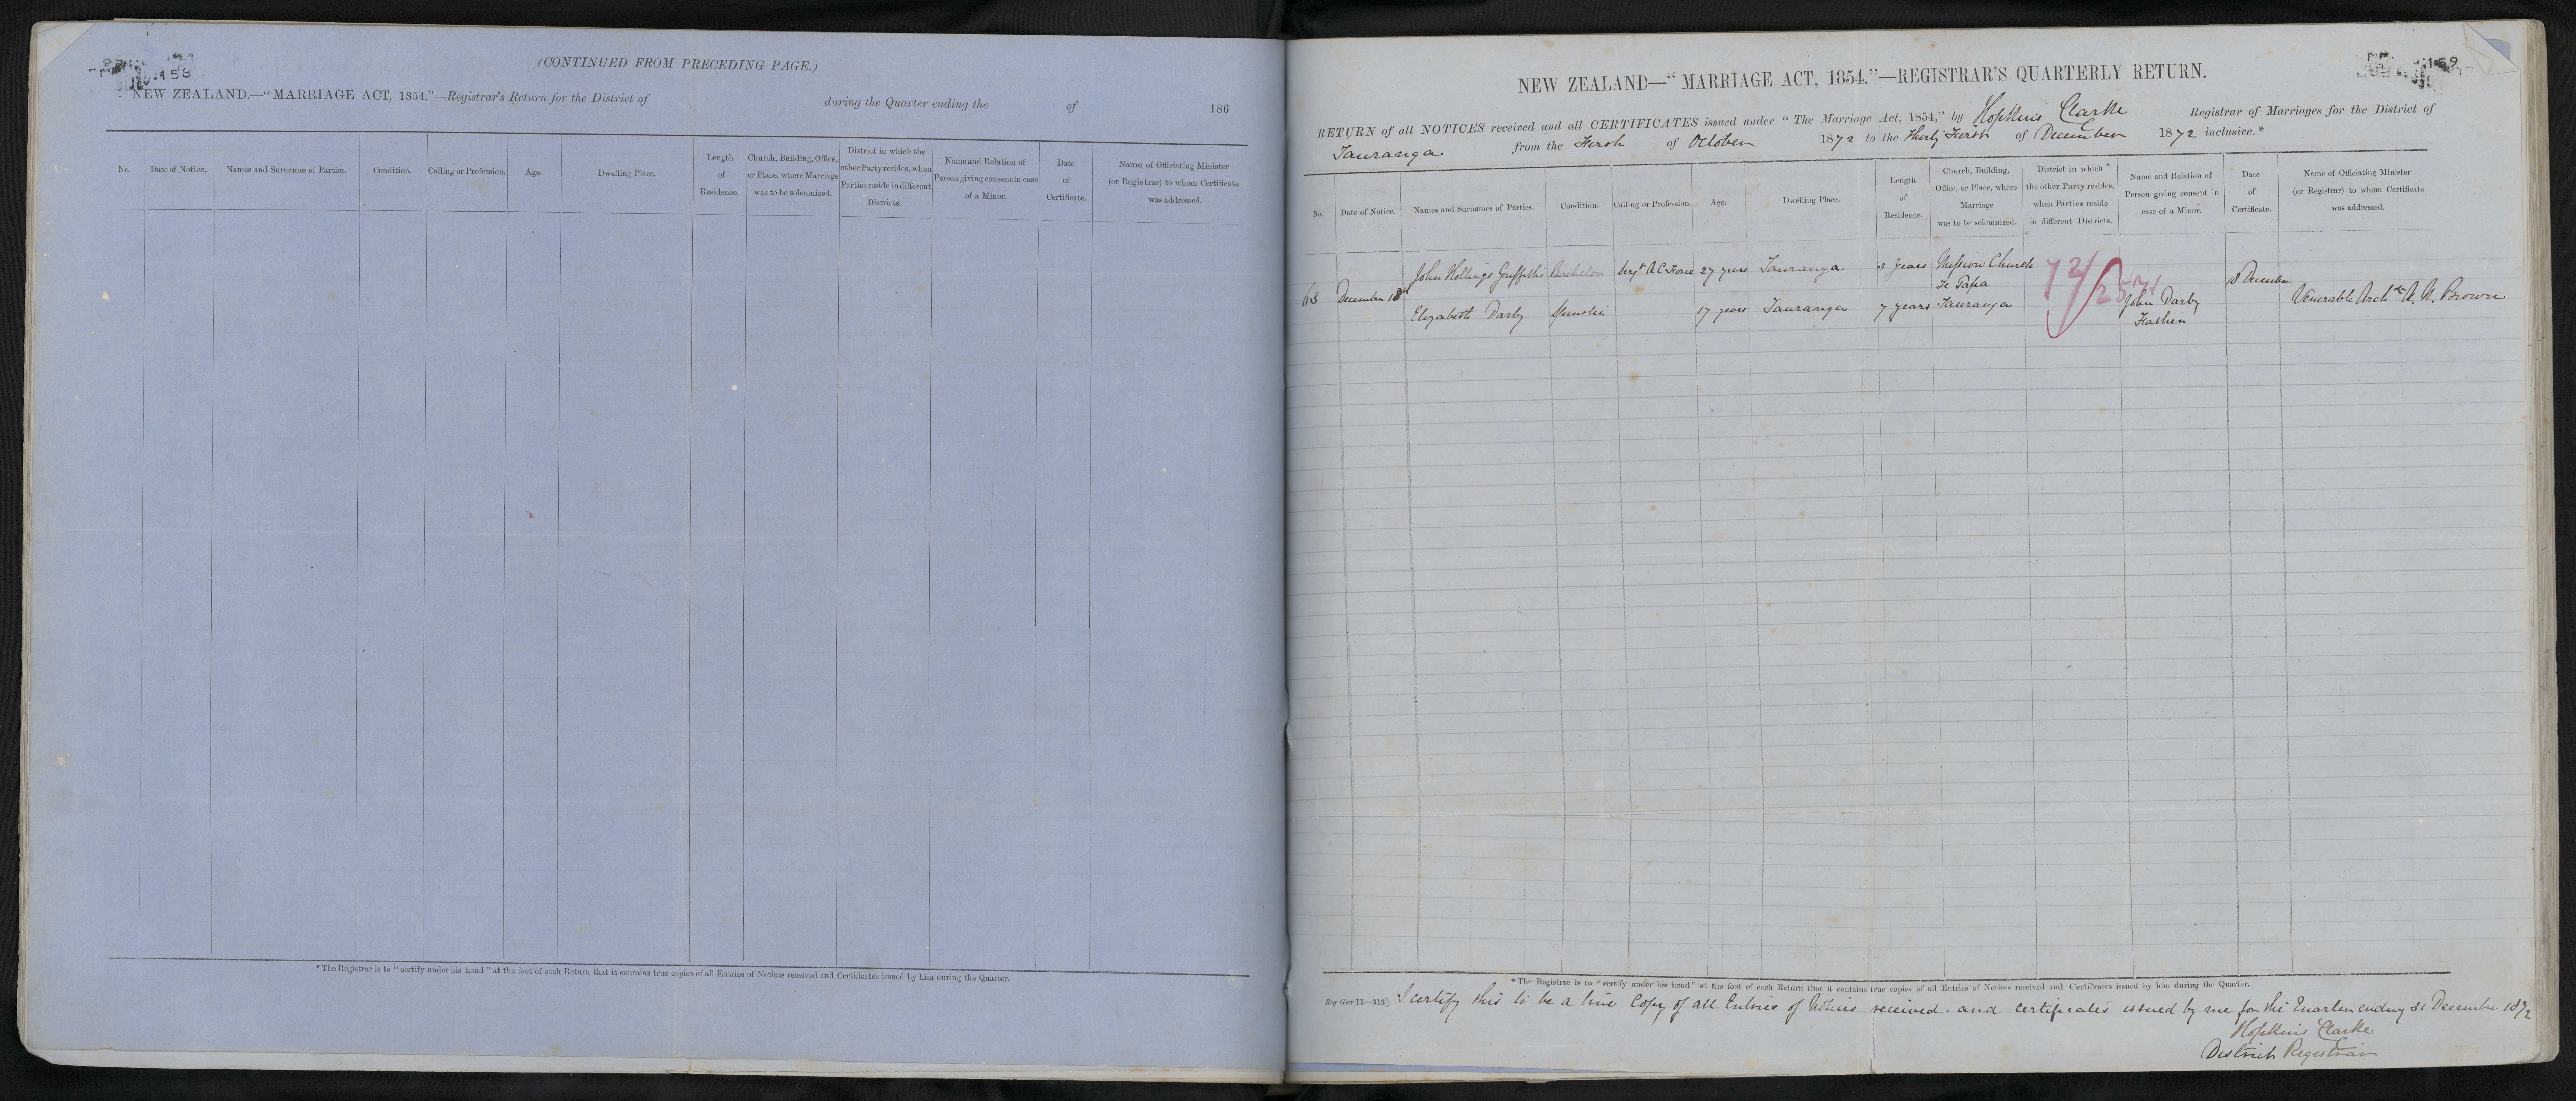 158
(CONTINUED FROM PRECEDING PAGE.)
NEW ZEALAND.—"MARRIAGE ACT, 1854."—Registrar's Return for the District of during the Quarter ending the of 186
No. Date of Notice. Names and Surnames of Parties. Condition. Calling or Profession. Age. Dwelling Place. Length of Residence. Church, Building, Office, or Place, where Marriage was to be solemnized. District in which the other Party resides, when Parties reside in different Districts. Name and Relation of Person giving consent in case of a Minor. Date of Certificate. Name of Officiating Minister (or Registrar) to whom Certificate was addressed.
* The Registrar is to "certify under his hand" at the foot of each Return that it contains true copies of all Entries of Notices received and Certificates issued by him during the Quarter.
159
NEW ZEALAND—"MARRIAGE ACT, 1854."—REGISTRAR'S QUARTERLY RETURN.
RETURN of all NOTICES received and all CERTIFICATES issued under "The Marriage Act, 1854," by Hopkins Clarke Registrar of Marriages for the District of
Tauranga from the First of October 1872 to the Thirty First of December 1872 inclusive.*
No. Date of Notice. Names and Surnames of Parties. Condition. Calling or Profession. Age. Dwelling Place. Length of Residence. Church, Building, Office, or Place, where Marriage was to be solemnized. District in which * the other Party resides, when Parties reside in different Districts. Name and Relation of Person giving consent in case of a Minor. Date of Certificate. Name of Officiating Minister (or Registrar) to whom Certificate was addressed.
John Hollings Griffiths Bachelor Sergt A C Force 27 years Tauranga 3 years Mission Church
63 December 18th Te Papa 72/2571 18 December
Elizabeth Darby Spinster 17 years Tauranga 7 years Tauranga John Darby Venerable Archdn A. N. Brown
Father
* The Registrar is to "certify under his hand" at the foot of each Return that it contains true copies of all Entries of Notices received and Certificates issued by him during the Quarter.
I certify this to be a true Copy of all Entries of Notices received and certificates issued by me for the Quarter ending 31 December 1872
Hopkins Clarke
District Registrar